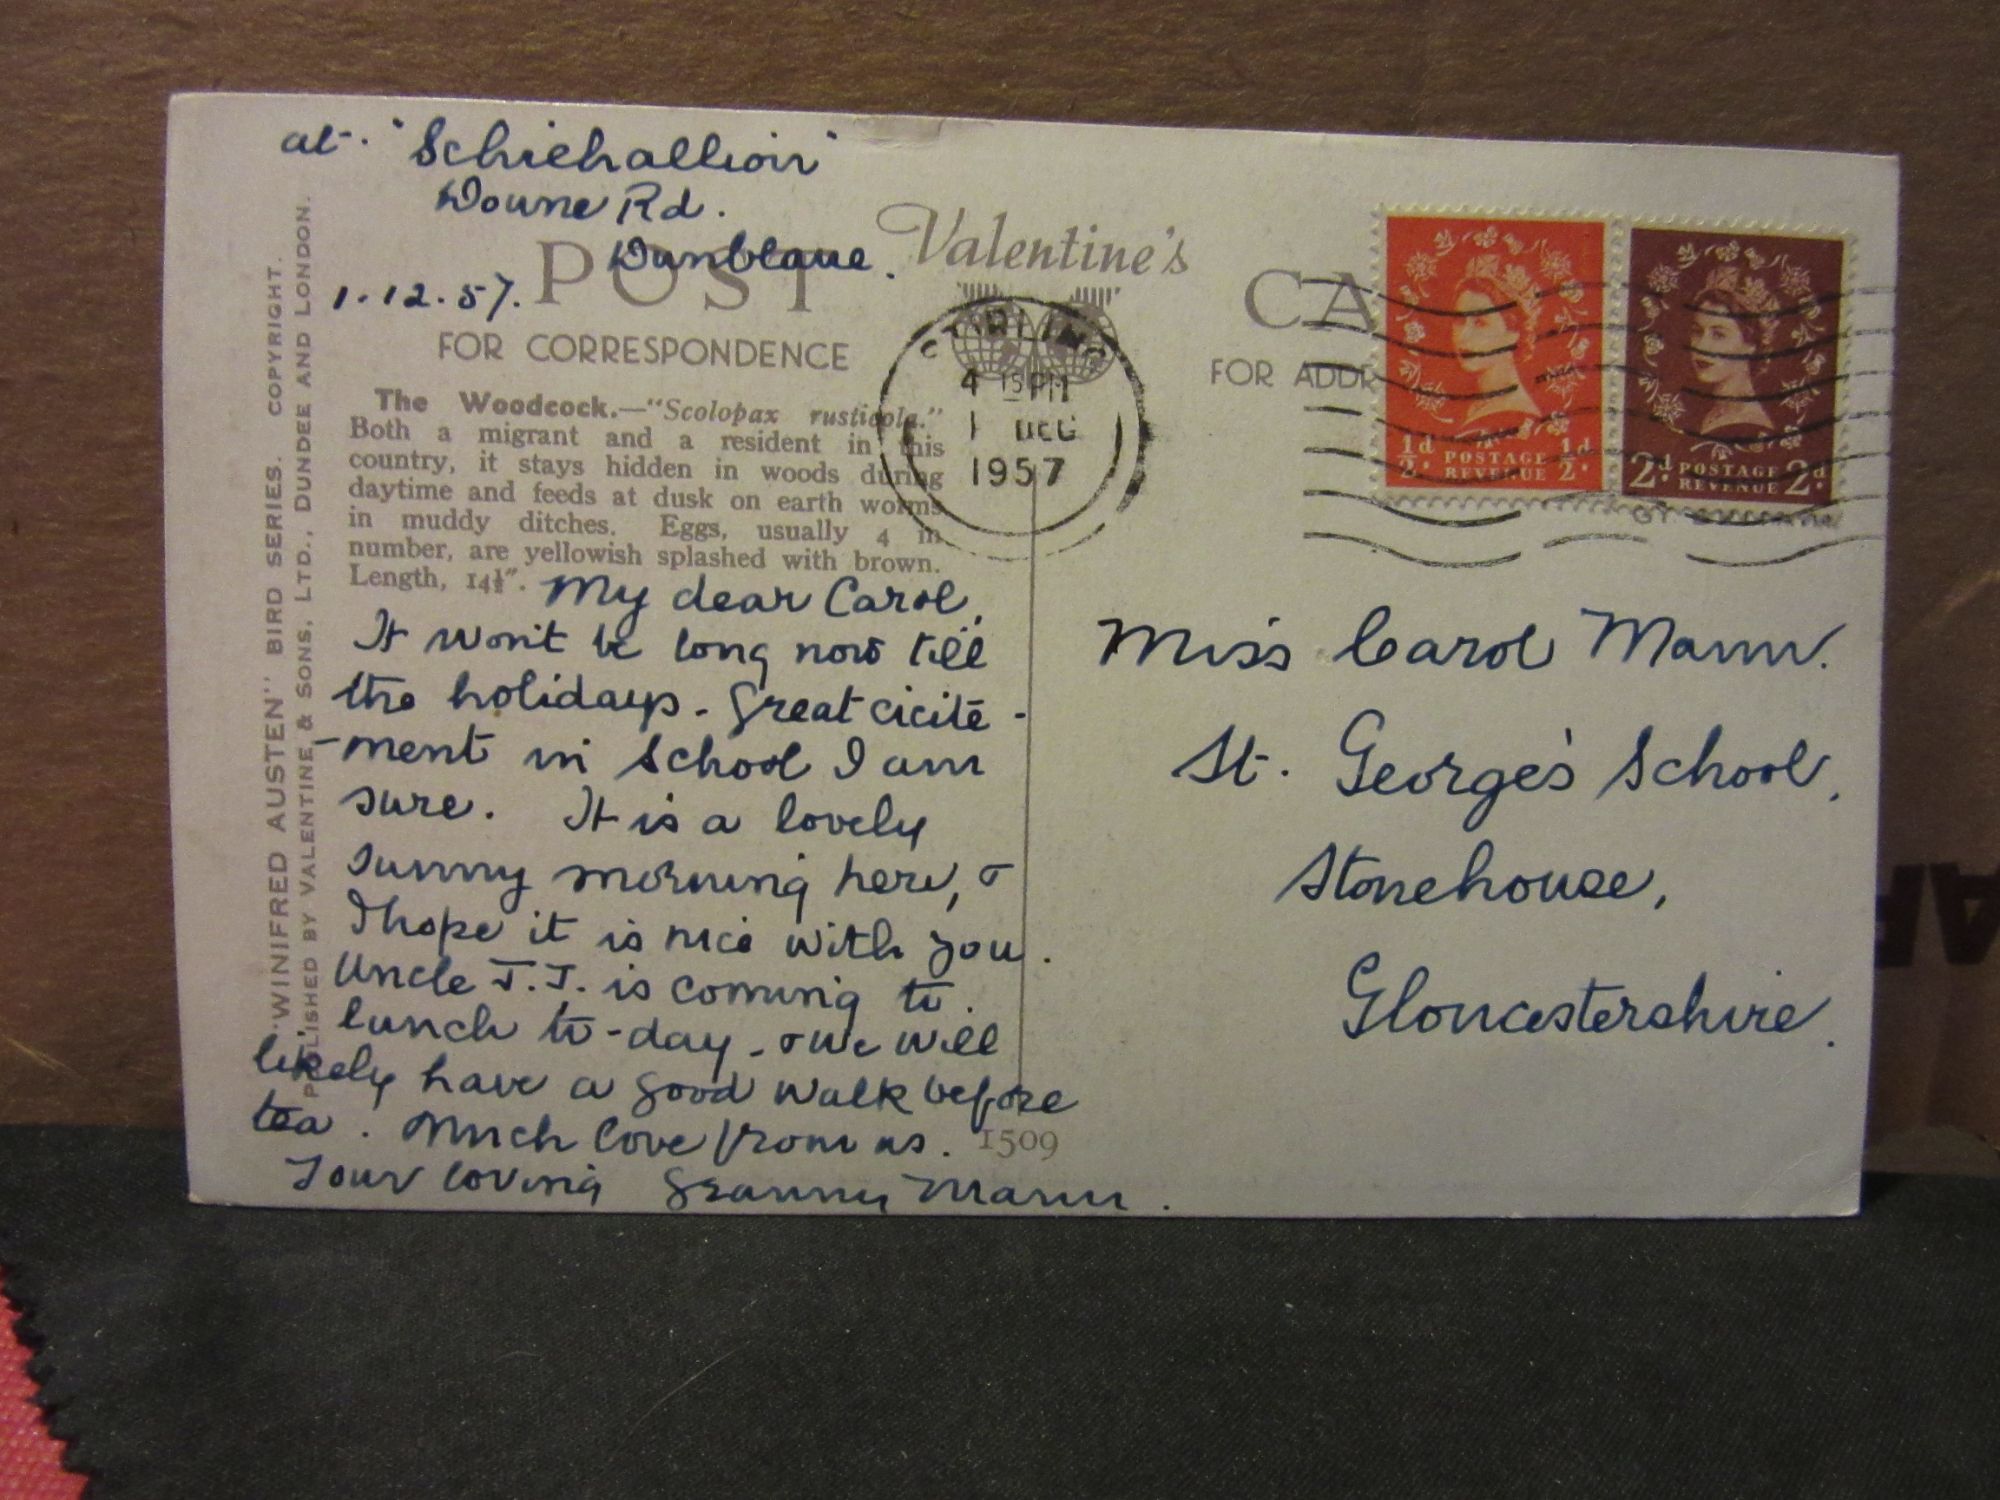 at. "Schiehallion"
Doune Rd.
Dunblane.
1.12.57.
POST CA
Valentine's
FOR CORRESPONDENCE
FOR ADDR
STIRLING
4 15 PM
1 DEC
1957
½d POSTAGE REVENUE ½d
2d POSTAGE REVENUE 2d
The Woodcock.—"Scolopax rusticola."
Both a migrant and a resident in this
country, it stays hidden in woods during
daytime and feeds at dusk on earth worms
in muddy ditches. Eggs, usually 4 in
number, are yellowish splashed with brown.
Length, 14½".
My dear Carol,
It won't be long now till
the holidays. Great cicite-
-ment in School I am
sure. It is a lovely
sunny morning here, &
I hope it is nice with you.
Uncle J.J. is coming to
lunch to-day, & we will
likely have a good walk before
tea. Much love from us.
Your loving Granny Mann.
1509
Miss Carol Mann.
St. George's School,
Stonehouse,
Gloucestershire.
"WINIFRED AUSTEN" BIRD SERIES. COPYRIGHT.
PUBLISHED BY VALENTINE & SONS, LTD., DUNDEE AND LONDON.